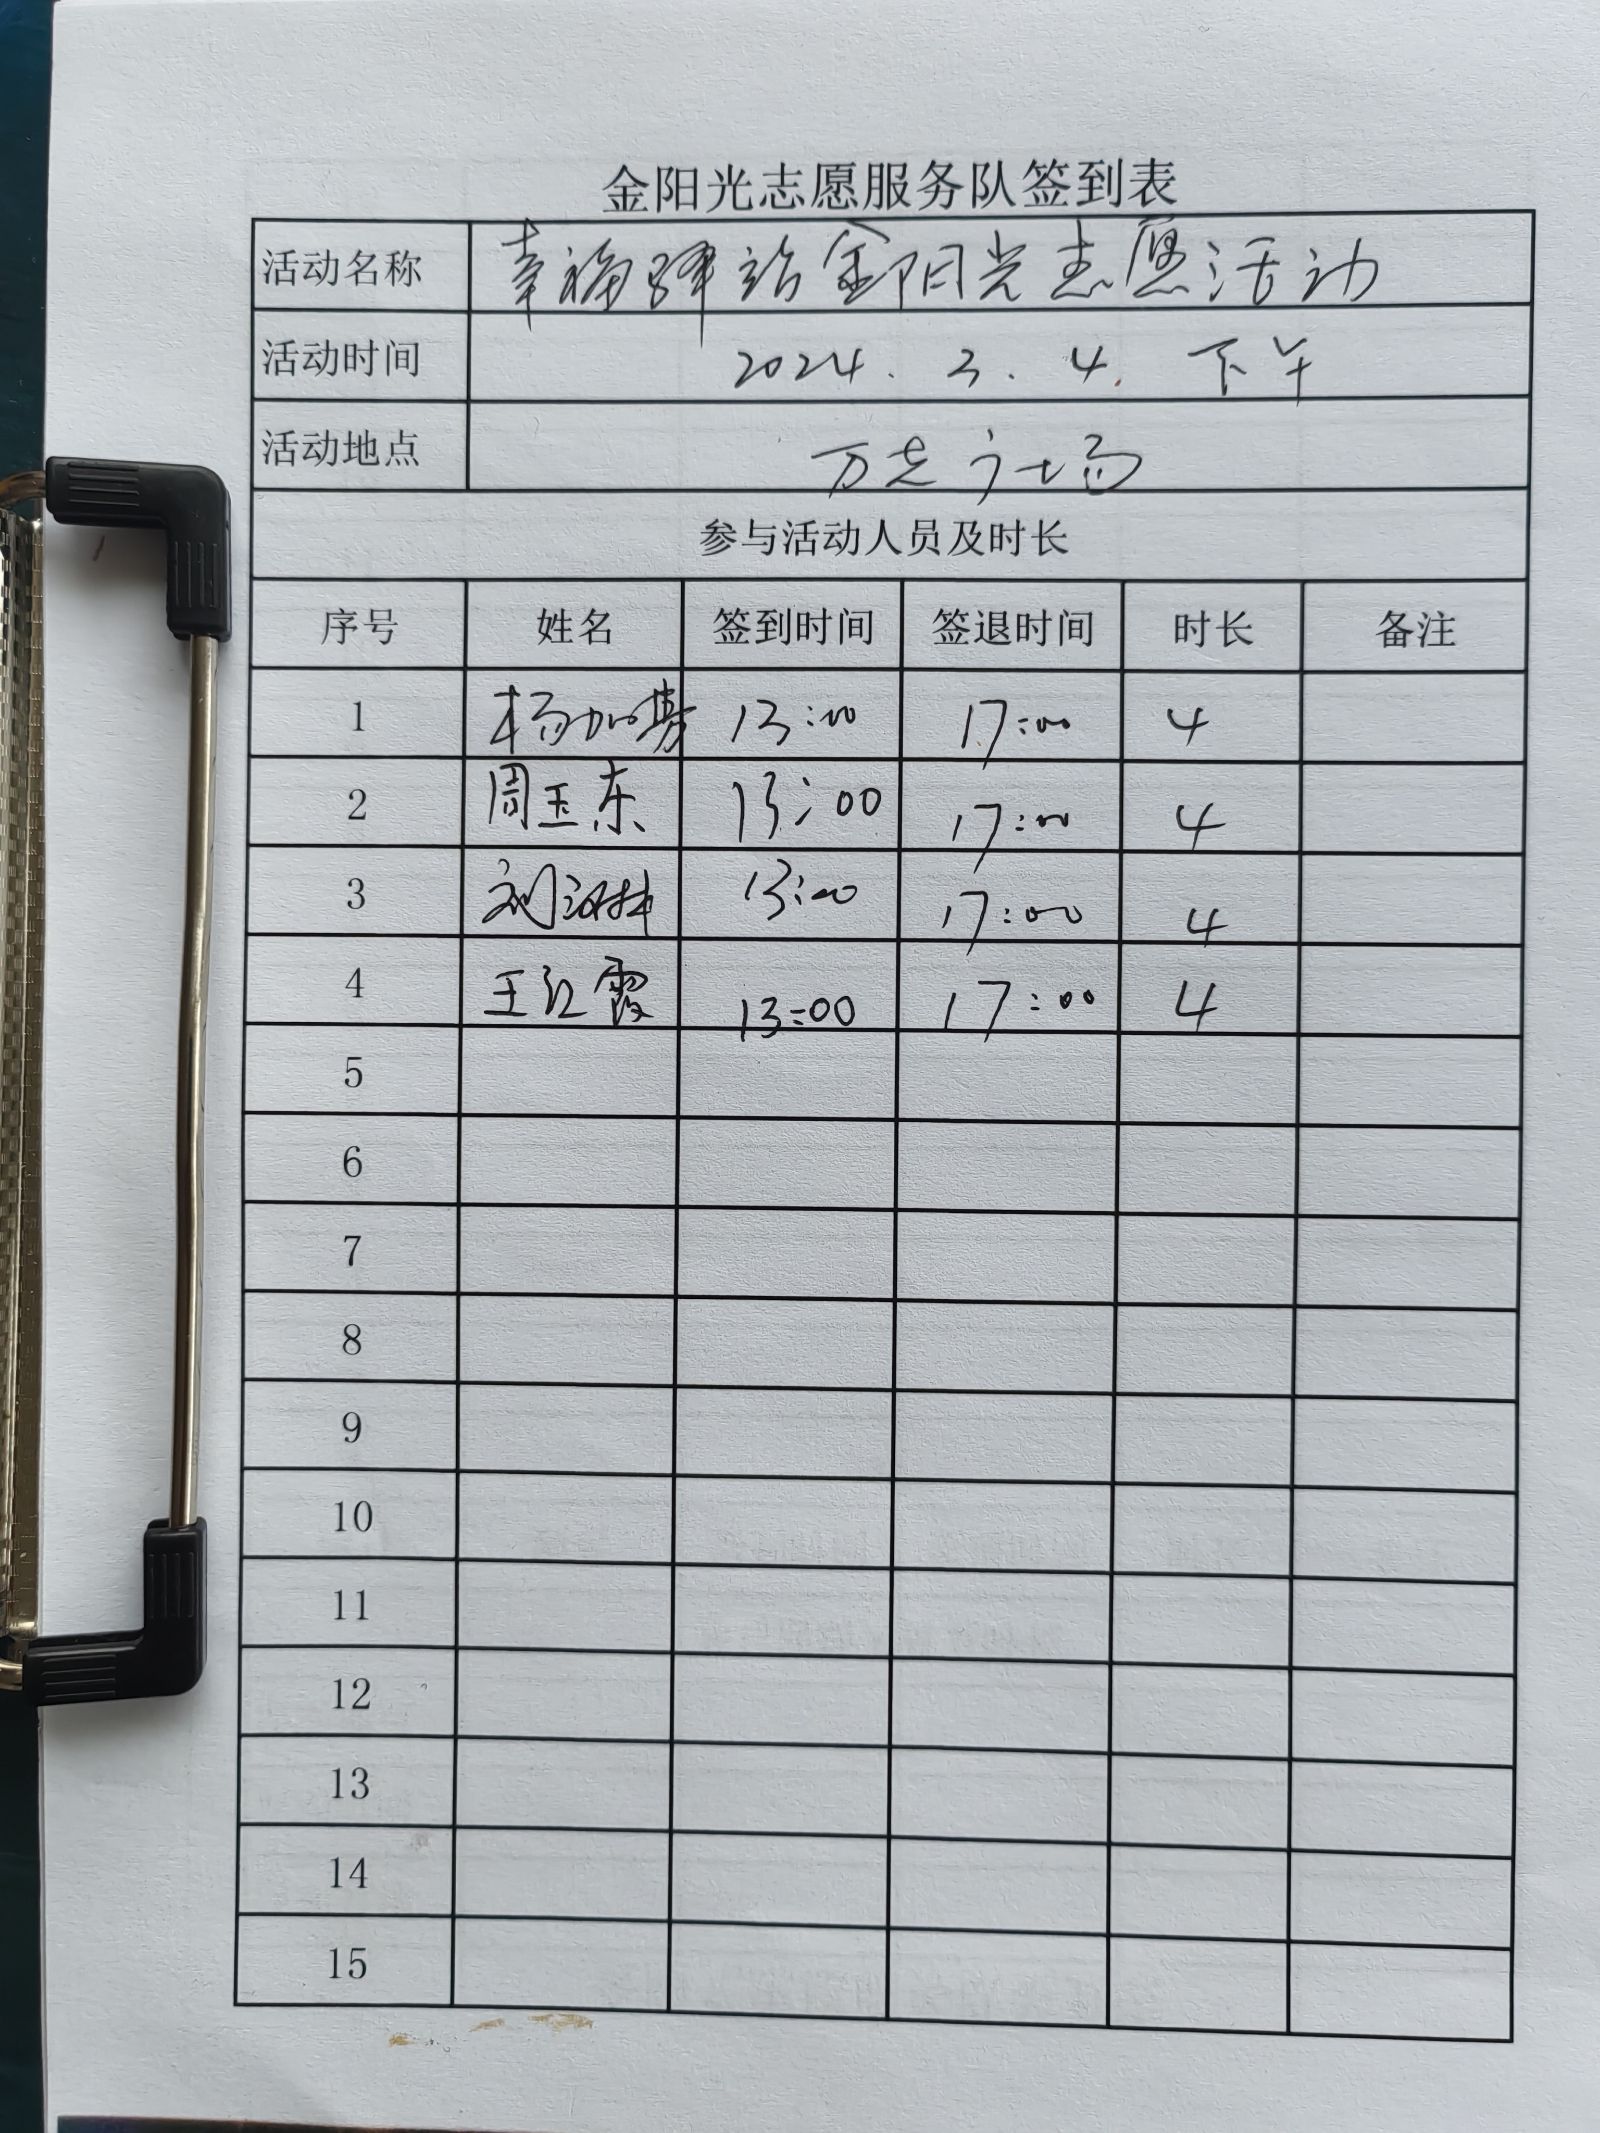 金阳光志愿服务队签到表
活动名称 幸福驿站金阳光志愿活动
活动时间 2024.3.4.下午
活动地点 万达广场
参与活动人员及时长
序号 姓名 签到时间 签退时间 时长 备注
1 杨加 13:00 17:00 4
2 周玉东 13:00 17:00 4
3 刘汉林 13:00 17:00 4
4 王红霞 13:00 17:00 4
5
6
7
8
9
10
11
12
13
14
15